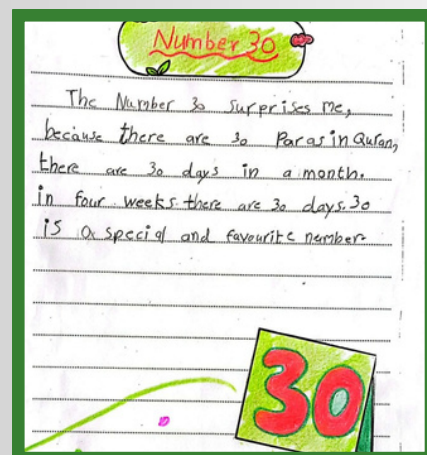 Number 30
The Number 30 surprises me,
because there are 30 Paras in Quran,
there are 30 days in a month.
in four weeks there are 30 days. 30
is a special and favourite number.
30